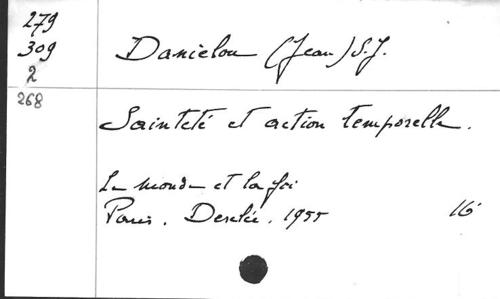 279
309
2
Danielou (Jean) S.J.
268
Sainteté et action temporelle.
Le monde et la foi
Paris. Desclée. 1955 16°